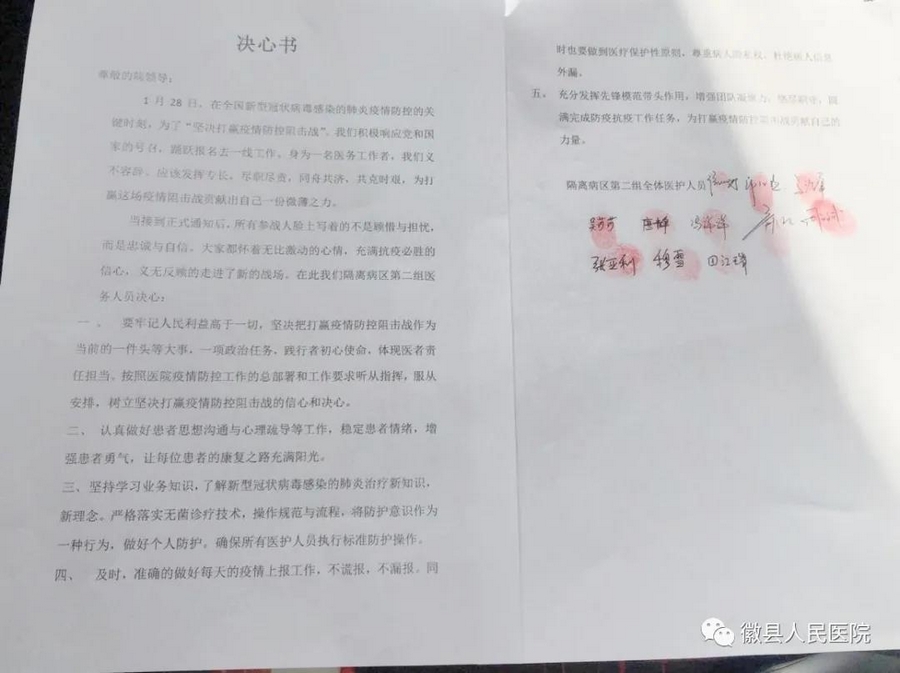 决心书
尊敬的院领导：
1月28日，在全国新型冠状病毒感染的肺炎疫情防控的关
键时刻，为了“坚决打赢疫情防控阻击战”。我们积极响应党和国
家的号召，踊跃报名去一线工作。身为一名医务工作者，我们义
不容辞。应该发挥专长，尽职尽责，同舟共济，共克时艰，为打
赢这场疫情阻击战贡献出自己一份微薄之力。
当接到正式通知后，所有参战人脸上写着的不是顾惜与担忧，
而是忠诚与自信。大家都怀着无比激动的心情，充满抗疫必胜的
信心，义无反顾的走进了新的战场。在此我们隔离病区第二组医
务人员决心：
一 。 要牢记人民利益高于一切，坚决把打赢疫情防控阻击战作为
当前的一件头等大事，一项政治任务、践行者初心使命、体现医者责
任担当。按照医院疫情防控工作的总部署和工作要求听从指挥，服从
安排，树立坚决打赢疫情防控阻击战的信心和决心。
二、 认真做好患者思想沟通与心理疏导等工作，稳定患者情绪，增
强患者勇气，让每位患者的康复之路充满阳光。
三、坚持学习业务知识，了解新型冠状病毒感染的肺炎治疗新知识，
新理念。严格落实无菌诊疗技术，操作规范与流程，将防护意识作为
一种行为，做好个人防护。确保所有医护人员执行标准防护操作。
四、 及时，准确的做好每天的疫情上报工作，不谎报，不漏报。同
时也要做到医疗保护性原则，尊重病人的私权，杜绝病人信息
外漏。
五。 充分发挥先锋模范带头作用，增强团队凝聚力，恪尽职守，圆
满完成防疫抗疫工作任务，为打赢疫情防控阻击战贡献自己的
力量。
隔离病区第二组全体医护人员
张亚利 穆雪 田江璋
徽县人民医院